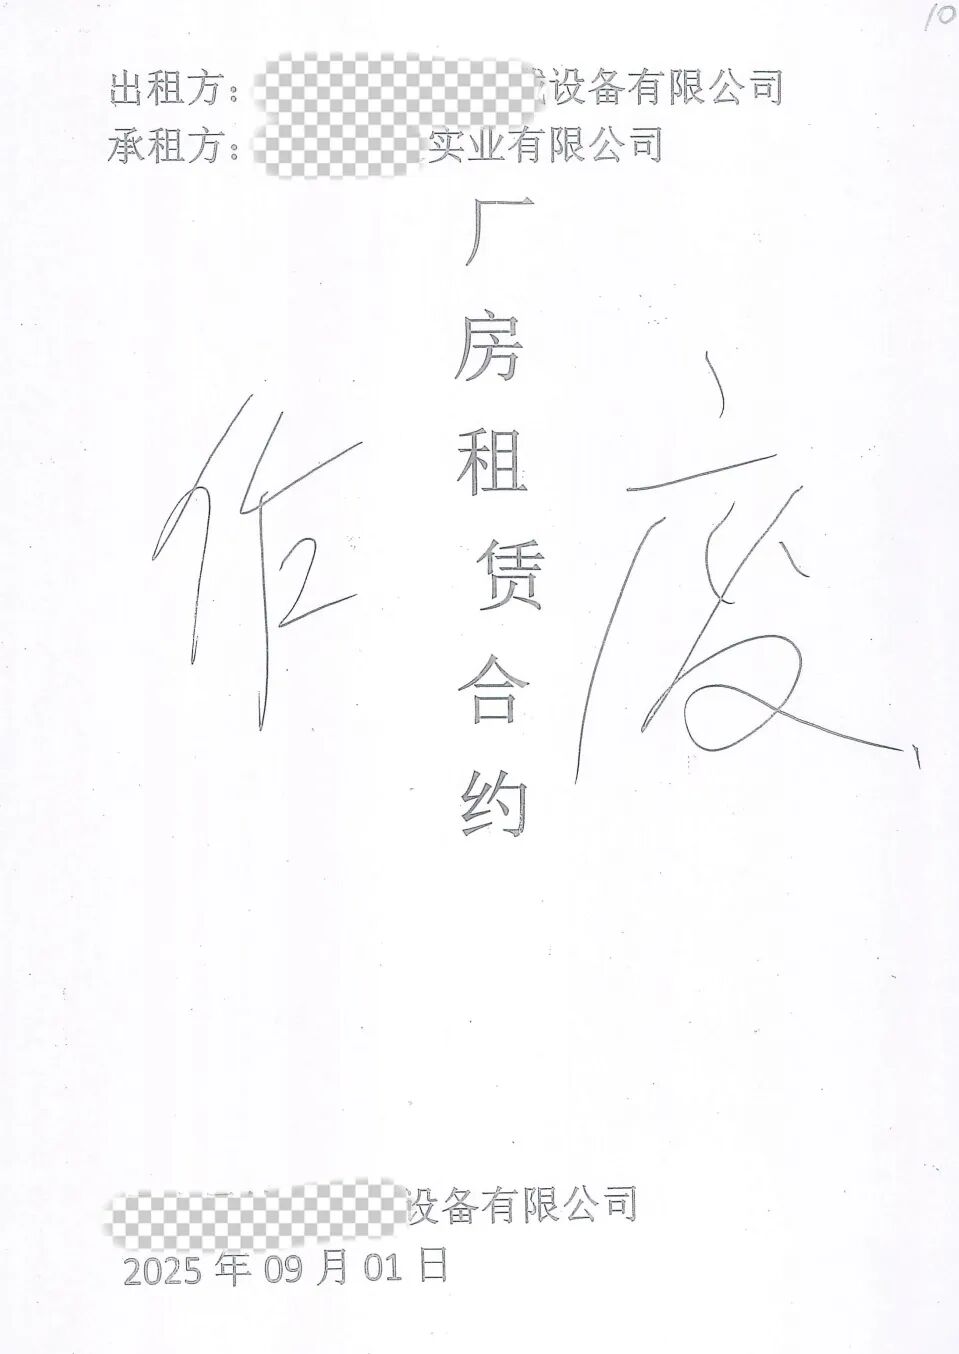 10
出租方：设备有限公司
承租方：实业有限公司
厂房租赁合约
作废
设备有限公司
2025年09月01日